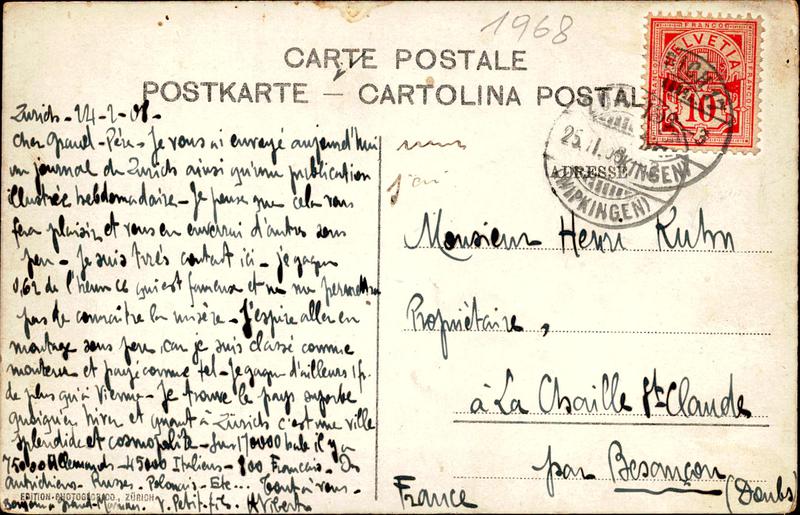 1968
CARTE POSTALE
POSTKARTE — CARTOLINA POSTALE
FRANCO
HELVETIA
10
25.II.08
(WIPKINGEN)
ADRESSE
Zurich - 24-2-08-
Cher Grand-Père - Je vous ai envoyé aujourd'hui
un journal de Zurich ainsi qu'une publication
illustrée hebdomadaire - Je pense que cela vous
fera plaisir et vous en enverrai d'autres sous
peu - Je suis très content ici - je gagne
0,62 de l'heure ce qui est fameux et ne me permettra
pas de connaître la misère - J'espère aller en
montage sous peu, car je suis classé comme
monteur et payé comme tel - Je gagne d'ailleurs 1 f.
de plus qu'à Vienne - Je trouve le pays superbe
quoiqu'en hiver et quant à Zürich c'est une ville
splendide et cosmopolite - Sur 170000 hab. il y a
75000 Allemands - 45000 Italiens - 800 Français - Des
autrichiens - Russes - Polonais - Etc... Tout à vous -
V. Petit-fils
EDITION PHOTOGLOB CO., ZÜRICH
j'ai
Monsieur Henri Kuhn
Propriétaire,
à La Chaille St-Claude
par Besançon (Doubs)
France